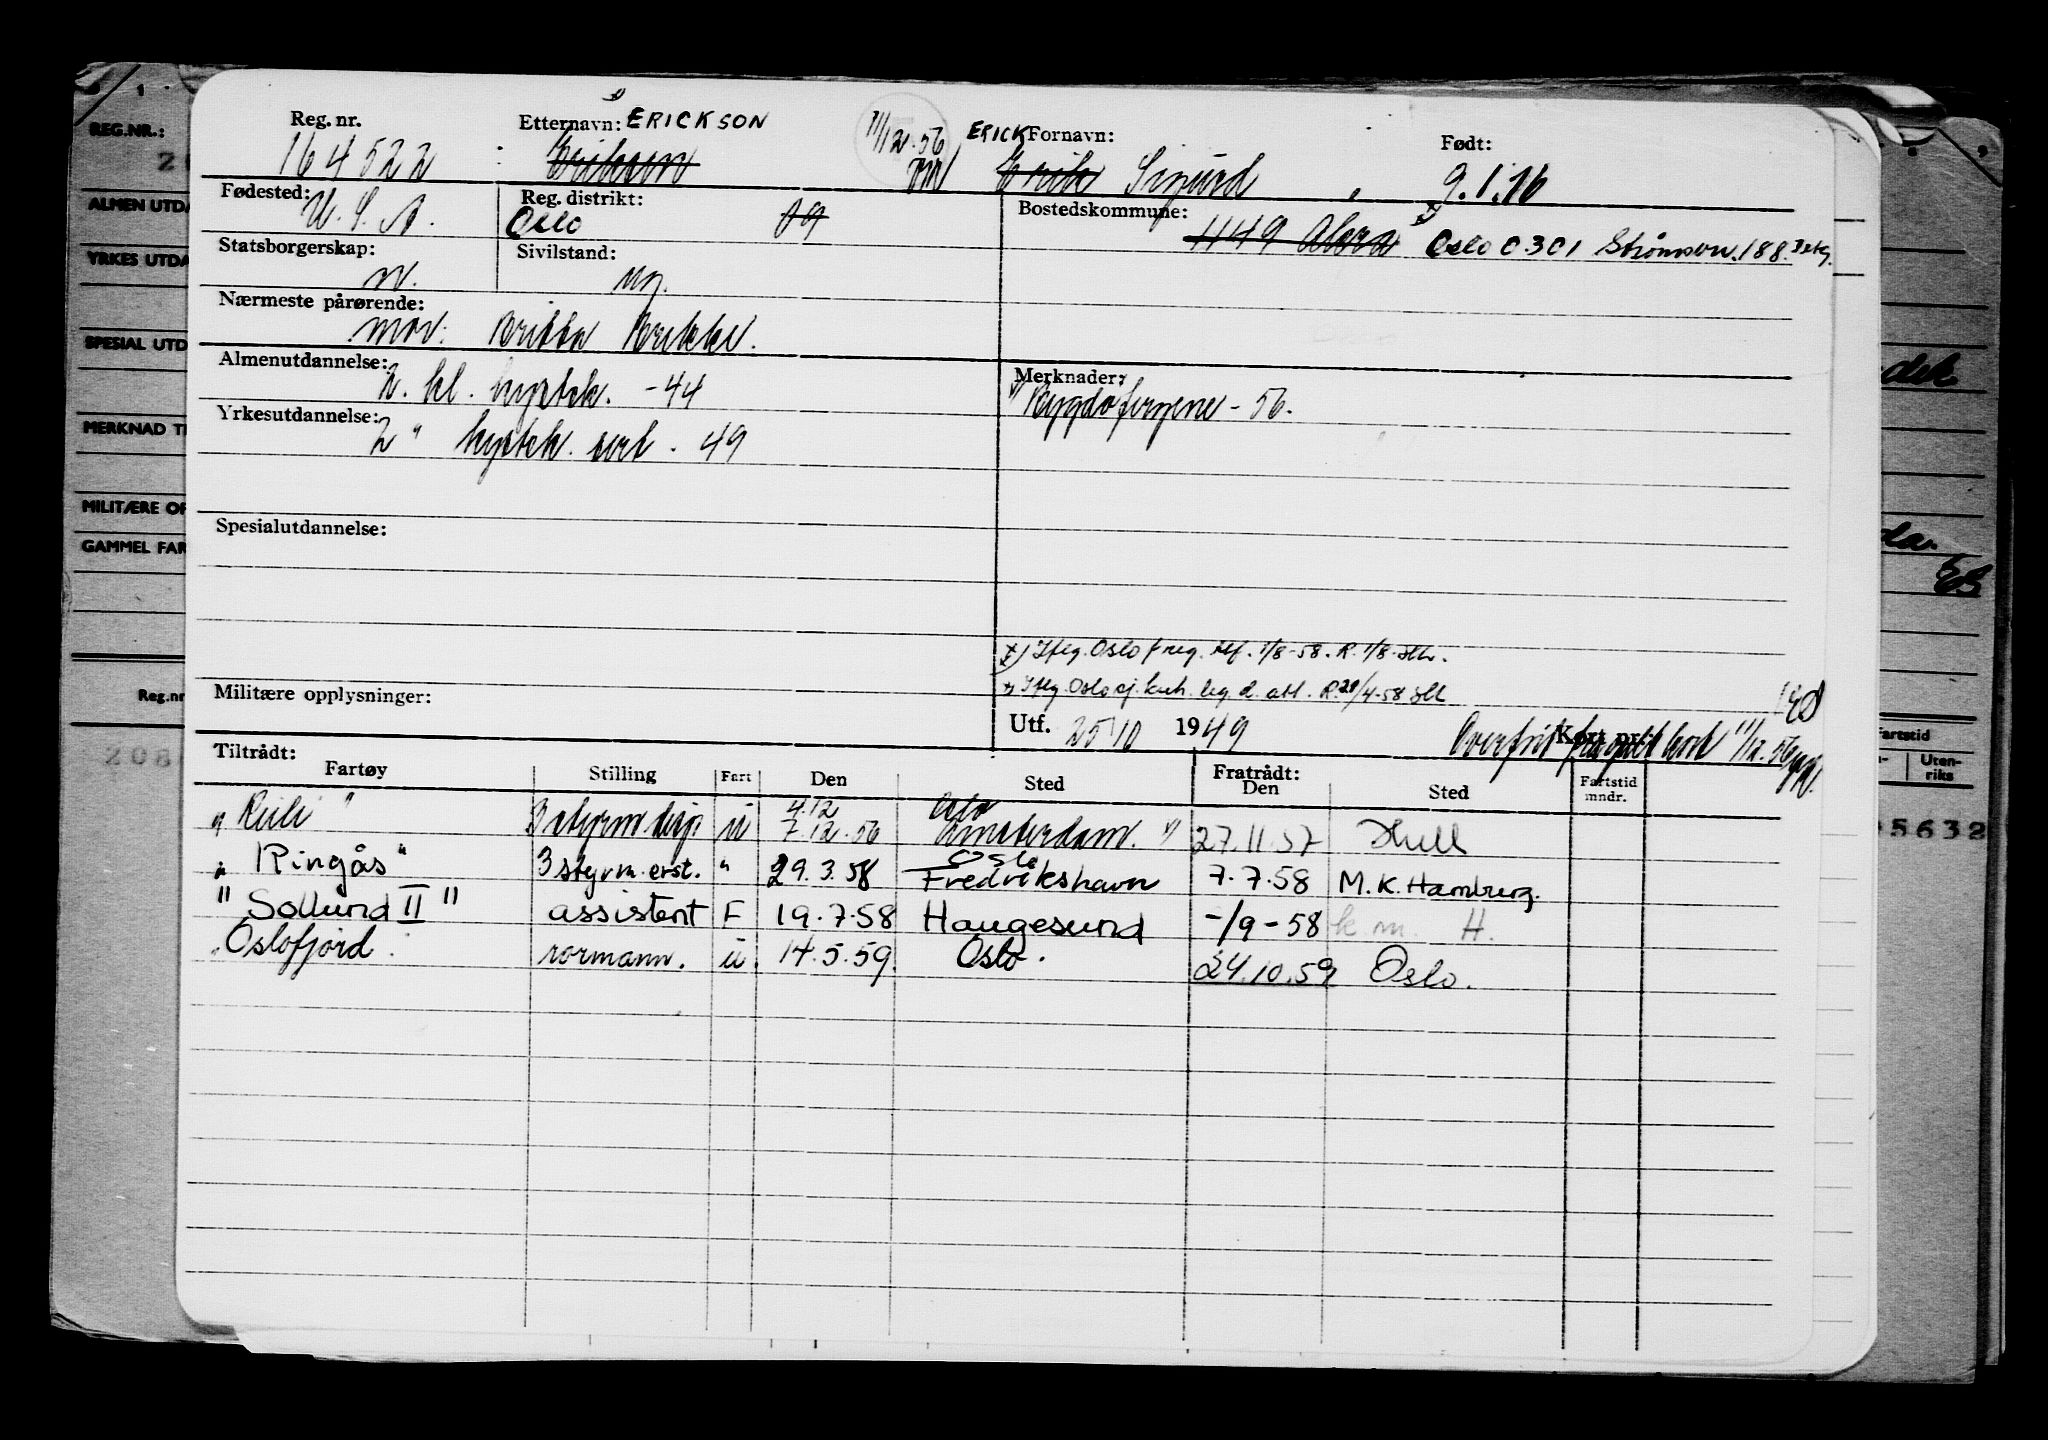 REG.NR.:
ALMEN UTDA
YRKES UTDA
SPESIAL UTD
MERKNAD T
MILITÆRE OP
GAMMEL FAR
Reg.nr
208
Reg. nr. Etternavn: ERICKSON 11/12.56 ERICK Fornavn: Født:
164522 Eriksen Erik Sigurd 9.1.16
Fødested: Reg. distrikt: Bostedskommune:
U. S. A. Oslo 09 1149 Oslo C301 188
Statsborgerskap: Sivilstand:
n. ug.
Nærmeste pårørende:
mor: Britta
Almenutdannelse: Merknader:
2. kl. - 44 - 56.
Yrkesutdannelse:
2 " - 49
Spesialutdannelse:
x) Iflg. Oslo 1/8-58. R. 1/8
x) Iflg. Oslo R. 29/4-58
Militære opplysninger:
Utf. 25/10 1949 Overført fra kort 11/12.56
Kort nr.
Tiltrådt: Fratrådt:
Fartøy Stilling Fart Den Sted Den Sted Fartstid mndr.
4.12 Oslo
3 styrm disp. u 7.12.56 Amsterdam. 27.11.57 Hull
Oslo
" Ringås " 3 styrm. erst. " 29.3.58 Fredrikshavn 7.7.58 M.K. Hamburg.
" Sollund II " assistent F 19.7.58 Haugesund -/9-58 k m. H.
" Oslofjord. rormann. u. 14.5.59. Oslo. 24.10.59 Oslo.
Fartstid
Uten-
riks
5632